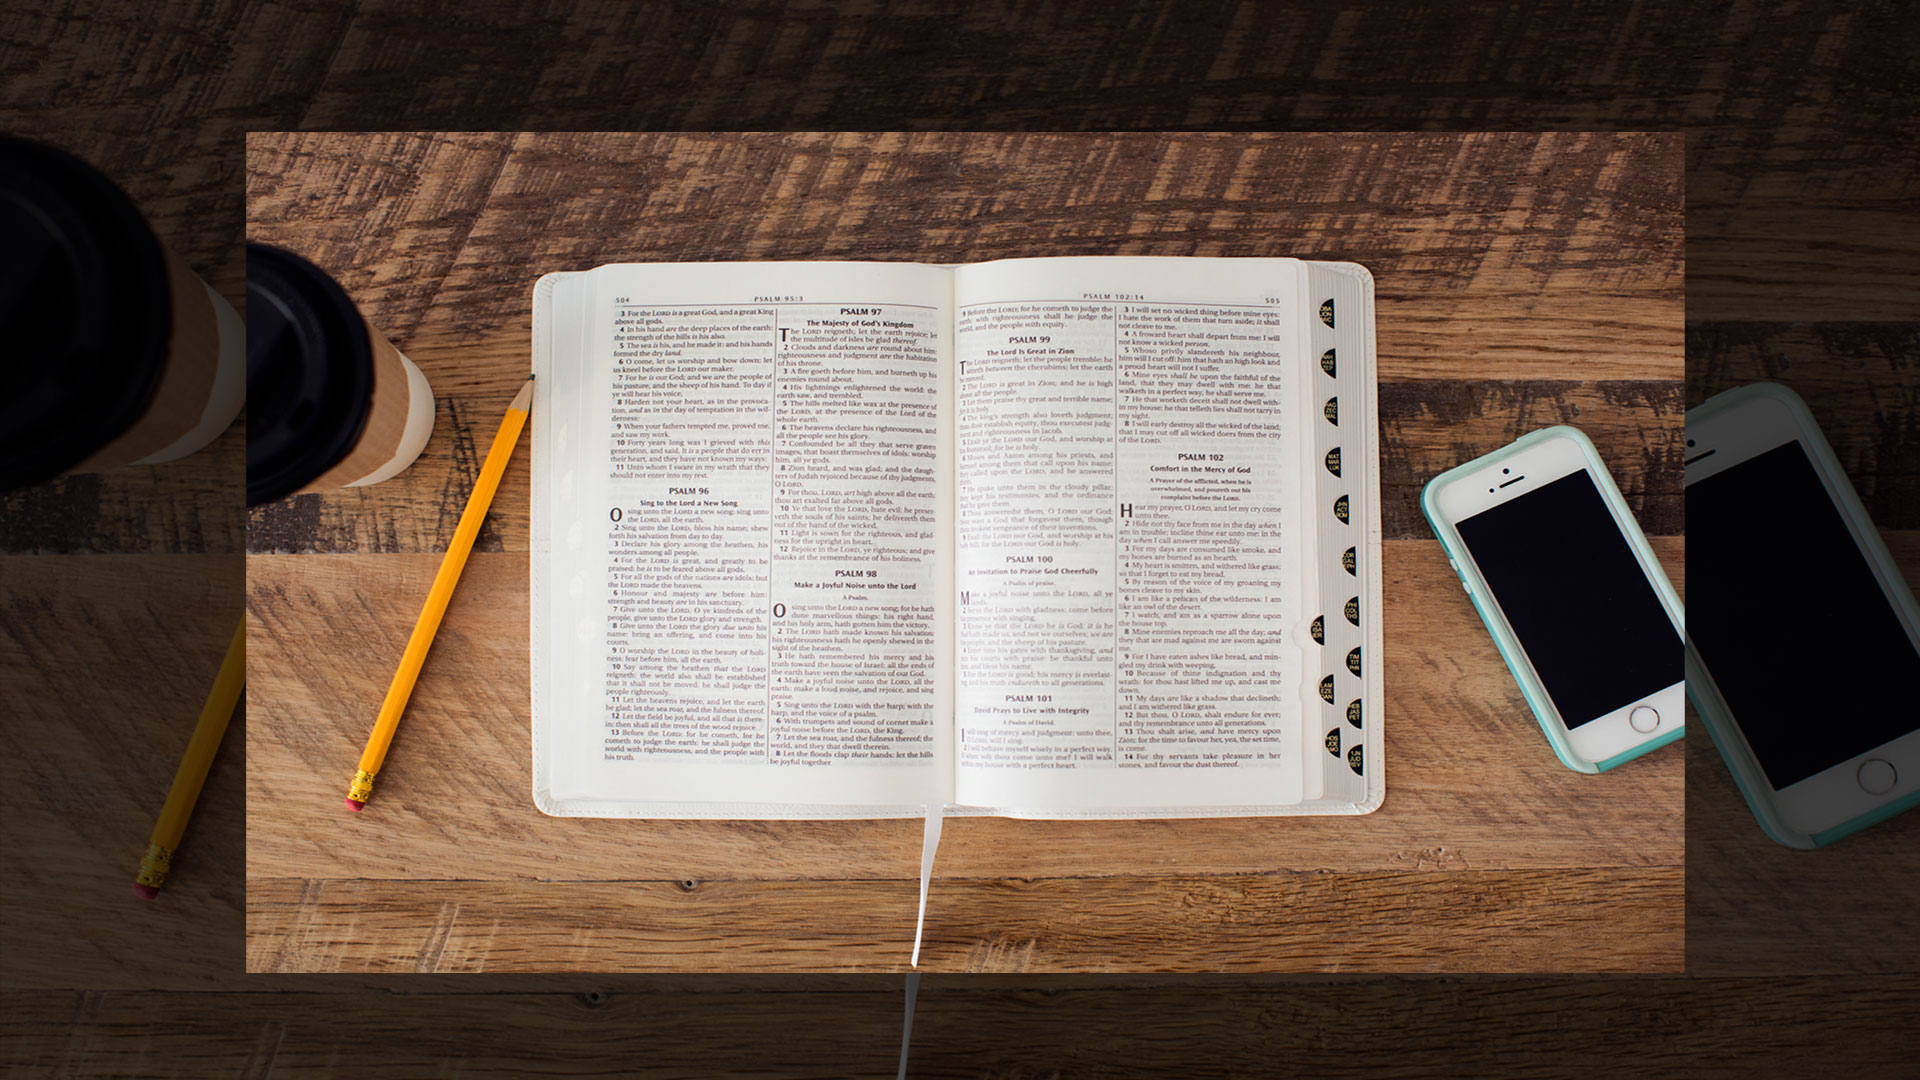 504
PSALM 95:3
3 For the LORD is a great God, and a great King
above all gods.
4 In his hand are the deep places of the earth:
the strength of the hills is his also.
5 The sea is his, and he made it: and his hands
formed the dry land.
6 O come, let us worship and bow down: let
us kneel before the LORD our maker.
7 For he is our God; and we are the people of
his pasture, and the sheep of his hand. To day if
ye will hear his voice,
8 Harden not your heart, as in the provoca-
tion, and as in the day of temptation in the wil-
derness:
9 When your fathers tempted me, proved me,
and saw my work.
10 Forty years long was I grieved with this
generation, and said, It is a people that do err in
their heart, and they have not known my ways:
11 Unto whom I sware in my wrath that they
should not enter into my rest.
PSALM 96
Sing to the Lord a New Song
O sing unto the LORD a new song: sing unto
the LORD, all the earth.
2 Sing unto the LORD, bless his name; shew
forth his salvation from day to day.
3 Declare his glory among the heathen, his
wonders among all people.
4 For the LORD is great, and greatly to be
praised: he is to be feared above all gods.
5 For all the gods of the nations are idols: but
the LORD made the heavens.
6 Honour and majesty are before him:
strength and beauty are in his sanctuary.
7 Give unto the LORD, O ye kindreds of the
people, give unto the LORD glory and strength.
8 Give unto the LORD the glory due unto his
name: bring an offering, and come into his
courts.
9 O worship the LORD in the beauty of holi-
ness: fear before him, all the earth.
10 Say among the heathen that the LORD
reigneth: the world also shall be established
that it shall not be moved: he shall judge the
people righteously.
11 Let the heavens rejoice, and let the earth
be glad; let the sea roar, and the fulness thereof.
12 Let the field be joyful, and all that is there-
in: then shall all the trees of the wood rejoice
13 Before the LORD: for he cometh, for he
cometh to judge the earth: he shall judge the
world with righteousness, and the people with
his truth.
PSALM 97
The Majesty of God's Kingdom
The LORD reigneth; let the earth rejoice; let
the multitude of isles be glad thereof.
2 Clouds and darkness are round about him:
righteousness and judgment are the habitation
of his throne.
3 A fire goeth before him, and burneth up his
enemies round about.
4 His lightnings enlightened the world: the
earth saw, and trembled.
5 The hills melted like wax at the presence of
the LORD, at the presence of the Lord of the
whole earth.
6 The heavens declare his righteousness, and
all the people see his glory.
7 Confounded be all they that serve graven
images, that boast themselves of idols: worship
him, all ye gods.
8 Zion heard, and was glad; and the daugh-
ters of Judah rejoiced because of thy judgments,
O LORD.
9 For thou, LORD, art high above all the earth:
thou art exalted far above all gods.
10 Ye that love the LORD, hate evil: he preser-
veth the souls of his saints; he delivereth them
out of the hand of the wicked.
11 Light is sown for the righteous, and glad-
ness for the upright in heart.
12 Rejoice in the LORD, ye righteous; and give
thanks at the remembrance of his holiness.
PSALM 98
Make a Joyful Noise unto the Lord
A Psalm.
O sing unto the LORD a new song; for he hath
done marvellous things: his right hand,
and his holy arm, hath gotten him the victory.
2 The LORD hath made known his salvation:
his righteousness hath he openly shewed in the
sight of the heathen.
3 He hath remembered his mercy and his
truth toward the house of Israel: all the ends of
the earth have seen the salvation of our God.
4 Make a joyful noise unto the LORD, all the
earth: make a loud noise, and rejoice, and sing
praise.
5 Sing unto the LORD with the harp; with the
harp, and the voice of a psalm.
6 With trumpets and sound of cornet make a
joyful noise before the LORD, the King.
7 Let the sea roar, and the fulness thereof; the
world, and they that dwell therein.
8 Let the floods clap their hands: let the hills
be joyful together
PSALM 102:14
505
9 Before the LORD; for he cometh to judge the
earth: with righteousness shall he judge the
world, and the people with equity.
PSALM 99
The Lord Is Great in Zion
The LORD reigneth; let the people tremble: he
sitteth between the cherubims; let the earth
be moved.
2 The LORD is great in Zion; and he is high
above all the people.
3 Let them praise thy great and terrible name;
for it is holy.
4 The king's strength also loveth judgment;
thou dost establish equity, thou executest judg-
ment and righteousness in Jacob.
5 Exalt ye the LORD our God, and worship at
his footstool; for he is holy.
6 Moses and Aaron among his priests, and
Samuel among them that call upon his name;
they called upon the LORD, and he answered
them.
7 He spake unto them in the cloudy pillar:
they kept his testimonies, and the ordinance
that he gave them.
8 Thou answeredst them, O LORD our God:
thou wast a God that forgavest them, though
thou tookest vengeance of their inventions.
9 Exalt the LORD our God, and worship at his
holy hill; for the LORD our God is holy.
PSALM 100
An Invitation to Praise God Cheerfully
A Psalm of praise.
Make a joyful noise unto the LORD, all ye
lands.
2 Serve the LORD with gladness: come before
his presence with singing.
3 Know ye that the LORD he is God: it is he
that hath made us, and not we ourselves; we are
his people, and the sheep of his pasture.
4 Enter into his gates with thanksgiving, and
into his courts with praise: be thankful unto
him, and bless his name.
5 For the LORD is good; his mercy is everlast-
ing; and his truth endureth to all generations.
PSALM 101
David Prays to Live with Integrity
A Psalm of David.
I will sing of mercy and judgment: unto thee,
O LORD, will I sing.
2 I will behave myself wisely in a perfect way.
O when wilt thou come unto me? I will walk
within my house with a perfect heart.
3 I will set no wicked thing before mine eyes:
I hate the work of them that turn aside; it shall
not cleave to me.
4 A froward heart shall depart from me: I will
not know a wicked person.
5 Whoso privily slandereth his neighbour,
him will I cut off: him that hath an high look and
a proud heart will not I suffer.
6 Mine eyes shall be upon the faithful of the
land, that they may dwell with me: he that
walketh in a perfect way, he shall serve me.
7 He that worketh deceit shall not dwell with-
in my house: he that telleth lies shall not tarry in
my sight.
8 I will early destroy all the wicked of the land;
that I may cut off all wicked doers from the city
of the LORD.
PSALM 102
Comfort in the Mercy of God
A Prayer of the afflicted, when he is
overwhelmed, and poureth out his
complaint before the LORD.
Hear my prayer, O LORD, and let my cry come
unto thee.
2 Hide not thy face from me in the day when I
am in trouble; incline thine ear unto me: in the
day when I call answer me speedily.
3 For my days are consumed like smoke, and
my bones are burned as an hearth.
4 My heart is smitten, and withered like grass;
so that I forget to eat my bread.
5 By reason of the voice of my groaning my
bones cleave to my skin.
6 I am like a pelican of the wilderness: I am
like an owl of the desert.
7 I watch, and am as a sparrow alone upon
the house top.
8 Mine enemies reproach me all the day; and
they that are mad against me are sworn against
me.
9 For I have eaten ashes like bread, and min-
gled my drink with weeping,
10 Because of thine indignation and thy
wrath: for thou hast lifted me up, and cast me
down.
11 My days are like a shadow that declineth;
and I am withered like grass.
12 But thou, O LORD, shalt endure for ever;
and thy remembrance unto all generations.
13 Thou shalt arise, and have mercy upon
Zion: for the time to favour her, yea, the set time,
is come.
14 For thy servants take pleasure in her
stones, and favour the dust thereof.
HAG
ZEC
MAL
MAT
MAR
LUK
JHN
ACT
ROM
COR
GAL
EPH
PHI
COL
THS
TIM
TIT
PHN
LAM
EZE
DAN
HEB
JAS
PET
HOS
JOE
AMO
1JN
JUD
REV